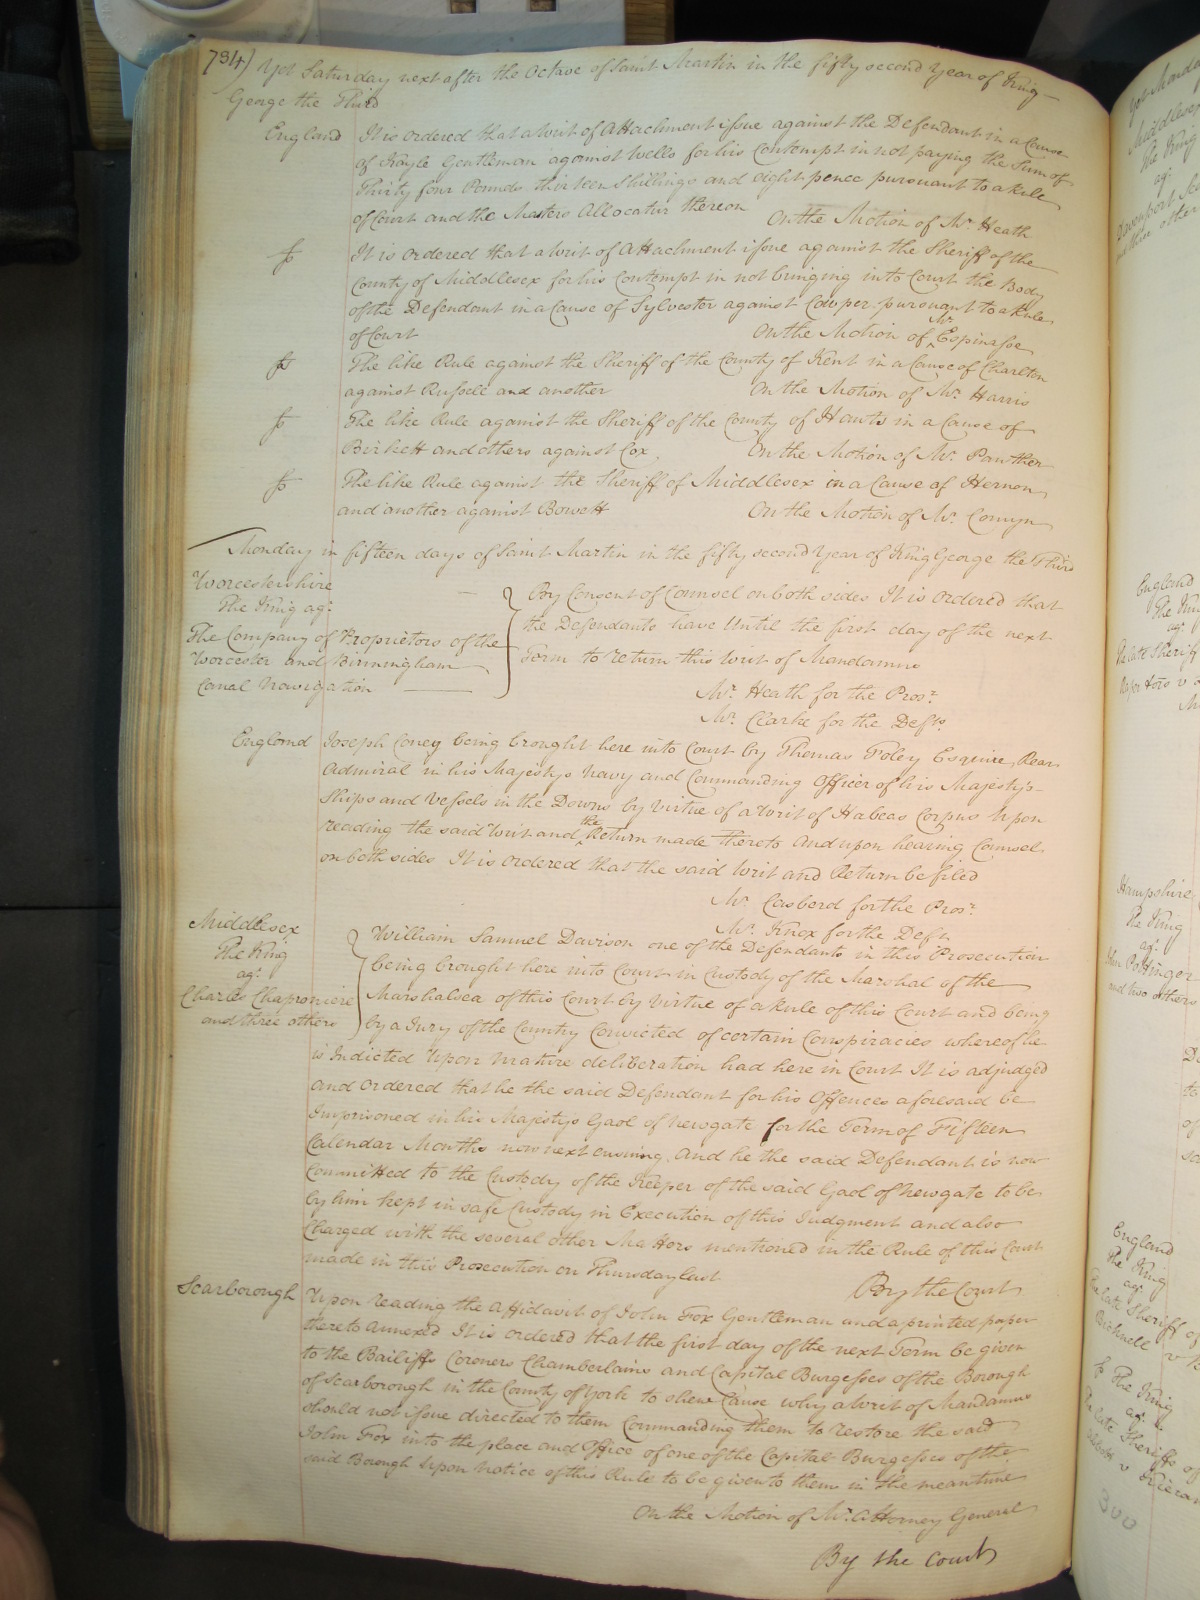 734) Yet Saturday next after the Octave of Saint Martin in the fifty second Year of King
George the Third
England It is ordered that a Writ of Attachment issue against the Defendant in a Cause
of Kayle Gentleman against Wells for his Contempt in not paying the Sum of
Thirty four Pounds thirteen Shillings and eight pence pursuant to a Rule
of Court and the Masters Allocatur thereon On the Motion of Mr. Heath
It is ordered that a Writ of Attachment issue against the Sheriff of the
County of Middlesex for his Contempt in not bringing into Court the Body
of the Defendant in a Cause of Sylvester against Cowper pursuant to a Rule
of Court On the Motion of Mr. Espinasse
The like Rule against the Sheriff of the County of Kent in a Cause of Charlton
against Russell and another On the Motion of Mr. Harris
The like Rule against the Sheriff of the County of Hants in a Cause of
Birkett and others against Cox On the Motion of Mr. Panther
The like Rule against the Sheriff of Middlesex in a Cause of Hernon
and another against Bowett On the Motion of Mr. Comyn
Monday in fifteen days of Saint Martin in the fifty second Year of King George the Third
Worcestershire
The King agt.
The Company of Proprietors of the
Worcester and Birmingham
Canal Navigation
By Consent of Counsel on both sides It is ordered that
the Defendants have Until the first day of the next
Term to return this Writ of Mandamus
Mr. Heath for the Prosr.
Mr. Clarke for the Defts.
England Joseph Coney being brought here into Court by Thomas Foley Esquire Rear
Admiral in his Majestys Navy and Commanding Officer of his Majesty's
Ships and Vessels in the Downs by virtue of a Writ of Habeas Corpus Upon
reading the said Writ and the Return made thereto And upon hearing Counsel
on both sides It is ordered that the said Writ and Return be filed
Mr. Casberd for the Prosr.
Mr. Knox for the Deft.
Middlesex
The King
agt.
Charles Chaproniere
and three others
William Samuel Davison one of the Defendants in this Prosecution
being brought here into Court in Custody of the Marshal of the
Marshalsea of this Court by virtue of a Rule of this Court and being
by a Jury of the Country Convicted of certain Conspiracies whereof he
is Indicted Upon mature deliberation had here in Court It is adjudged
and ordered that he the said Defendant for his Offences aforesaid be
Imprisoned in his Majestys Gaol of Newgate for the Term of Fifteen
Calendar Months now next ensuing And he the said Defendant is now
committed to the Custody of the Keeper of the said Gaol of Newgate to be
by him kept in safe Custody in Execution of this Judgment and also
Charged with the several other Matters mentioned in the Rule of this Court
made in this Prosecution on Thursday last By the Court
Scarborough Upon reading the Affidavit of John Fox Gentleman and a printed paper
thereto Annexed It is ordered that the first day of the next Term be given
to the Bailiffs Coroners Chamberlains and Capital Burgesses of the Borough
of Scarborough in the County of York to shew Cause why a Writ of Mandamus
should not issue directed to them Commanding them to restore the said
John Fox into the place and Office of one of the Capital Burgesses of the
said Borough Upon Notice of this Rule to be given to them in the meantime
On the Motion of Mr. Attorney General
By the Court
Middlesex
The King
agt.
England
The King
agt.
Hampshire
The King
agt.
and two others
England
The King
agt.
Bicknell
The King
agt.
300